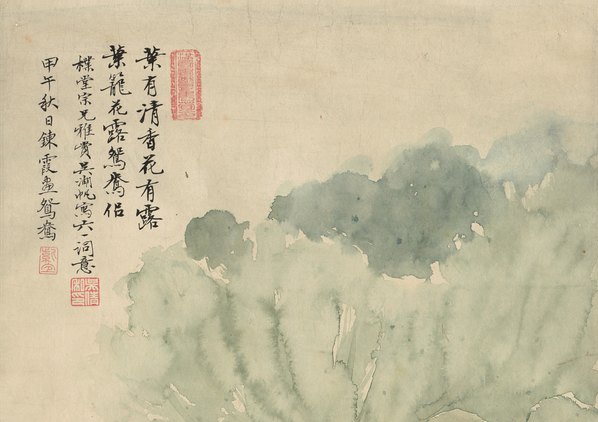 葉有清香花有露
葉籠花罩鴛鴦侶
樸堂宗兄雅賞吳湖帆寫六一詞意
甲午秋日鍊霞画鴛鴦